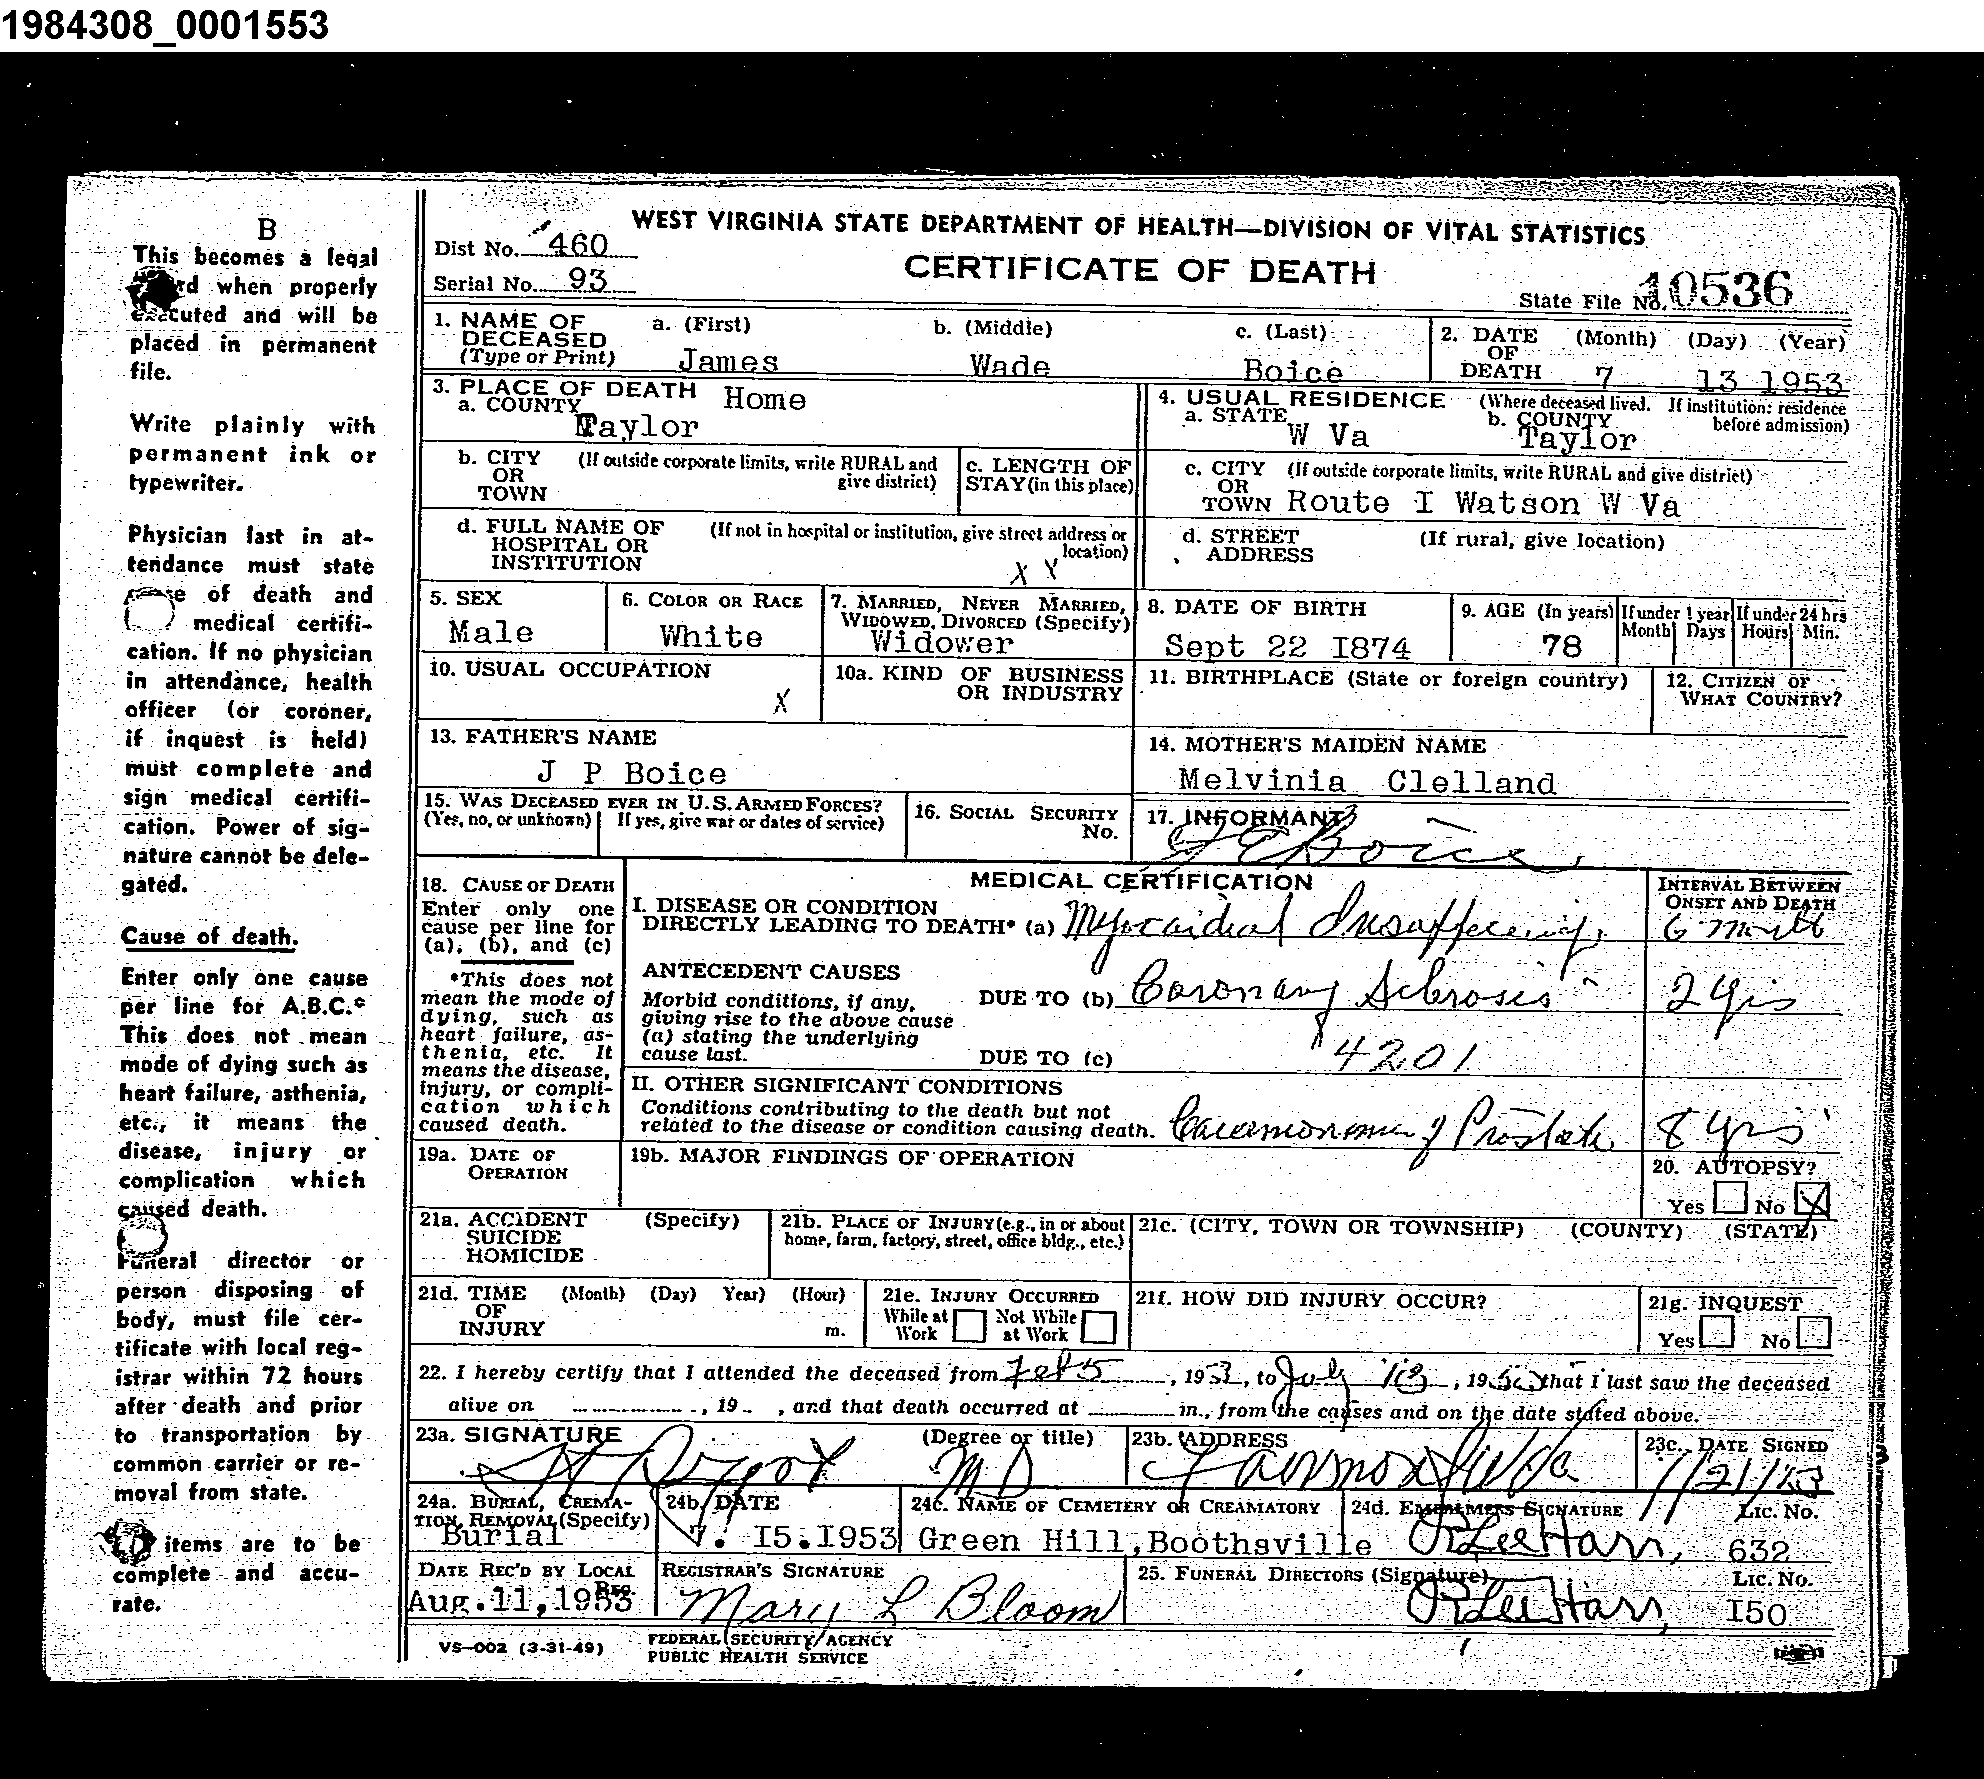 1984308_0001553
B
This becomes a legal
rd when properly
executed and will be
placed in permanent
file.
Write plainly with
permanent ink or
typewriter.
Physician last in at-
tendance must state
of death and
medical certifi-
cation. If no physician
in attendance, health
officer (or coroner,
if inquest is held)
must complete and
sign medical certifi-
cation. Power of sig-
nature cannot be dele-
gated.
Cause of death.
Enter only one cause
per line for A.B.C.*
This does not mean
mode of dying such as
heart failure, asthenia,
etc., it means the
disease, injury or
complication which
caused death.
Funeral director or
person disposing of
body, must file cer-
tificate with local reg-
istrar within 72 hours
after death and prior
to transportation by
common carrier or re-
moval from state.
items are to be
complete and accu-
rate.
WEST VIRGINIA STATE DEPARTMENT OF HEALTH—DIVISION OF VITAL STATISTICS
Dist No. 460
CERTIFICATE OF DEATH
Serial No. 93
State File No. 10536
1. NAME OF DECEASED (Type or Print) a. (First) James b. (Middle) Wade c. (Last) Boice
2. DATE OF DEATH (Month) (Day) (Year) 7 13 1953
3. PLACE OF DEATH Home
a. COUNTY Taylor
4. USUAL RESIDENCE (Where deceased lived. If institution: residence before admission)
a. STATE W Va b. COUNTY Taylor
b. CITY OR TOWN (If outside corporate limits, write RURAL and give district)
c. LENGTH OF STAY (in this place)
c. CITY OR TOWN (If outside corporate limits, write RURAL and give district)
Route I Watson W Va
d. FULL NAME OF HOSPITAL OR INSTITUTION (If not in hospital or institution, give street address or location)
X Y
d. STREET ADDRESS (If rural, give location)
5. SEX Male
6. COLOR OR RACE White
7. MARRIED, NEVER MARRIED, WIDOWED, DIVORCED (Specify) Widower
8. DATE OF BIRTH Sept 22 I874
9. AGE (In years) 78 If under 1 year Month Days If under 24 hrs Hours Min.
10. USUAL OCCUPATION X
10a. KIND OF BUSINESS OR INDUSTRY
11. BIRTHPLACE (State or foreign country)
12. CITIZEN OF WHAT COUNTRY?
13. FATHER'S NAME
J P Boice
14. MOTHER'S MAIDEN NAME
Melvinia Clelland
15. WAS DECEASED EVER IN U.S. ARMED FORCES?
(Yes, no, or unknown) If yes, give war or dates of service)
16. SOCIAL SECURITY No.
17. INFORMANT
Boice
18. CAUSE OF DEATH
Enter only one
cause per line for
(a), (b), and (c)
*This does not
mean the mode of
dying, such as
heart failure, as-
thenia, etc. It
means the disease,
injury, or compli-
cation which
caused death.
MEDICAL CERTIFICATION
INTERVAL BETWEEN ONSET AND DEATH
I. DISEASE OR CONDITION
DIRECTLY LEADING TO DEATH* (a) Myocardial Insufficiency 6 month
ANTECEDENT CAUSES
Morbid conditions, if any,
giving rise to the above cause
(a) stating the underlying
cause last.
DUE TO (b) Coronary Sclerosis 2 yrs
DUE TO (c) 4201
II. OTHER SIGNIFICANT CONDITIONS
Conditions contributing to the death but not
related to the disease or condition causing death. Carcinoma of Prostate 8 yrs
19a. DATE OF OPERATION
19b. MAJOR FINDINGS OF OPERATION
20. AUTOPSY?
Yes No X
21a. ACCIDENT SUICIDE HOMICIDE (Specify)
21b. PLACE OF INJURY (e.g., in or about home, farm, factory, street, office bldg., etc.)
21c. (CITY, TOWN OR TOWNSHIP) (COUNTY) (STATE)
21d. TIME OF INJURY (Month) (Day) Year) (Hour) m.
21e. INJURY OCCURRED While at Work Not While at Work
21f. HOW DID INJURY OCCUR?
21g. INQUEST Yes No
22. I hereby certify that I attended the deceased from Feb 5, 1953, to July 13, 19 that I last saw the deceased
alive on , 19 , and that death occurred at m., from the causes and on the date stated above.
23a. SIGNATURE (Degree or title) M D
23b. ADDRESS
23c. DATE SIGNED
24a. BURIAL, CREMATION, REMOVAL (Specify) Burial
24b. DATE 7. I5.I953
24c. NAME OF CEMETERY OR CREAMATORY Green Hill, Boothsville
24d. EMBALMERS SIGNATURE Lic. No.
R Lee Harr, 632
DATE REC'D BY LOCAL REG. Aug.11,1953
REGISTRAR'S SIGNATURE
Mary L Bloom
25. FUNERAL DIRECTORS (Signature) Lic. No.
R Lee Harr, I50
VS-002 (3-31-49)
FEDERAL SECURITY AGENCY
PUBLIC HEALTH SERVICE